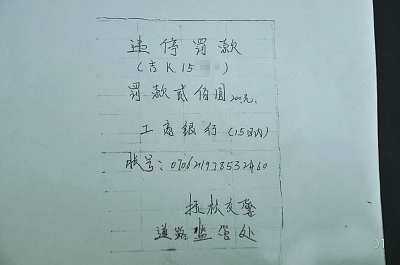 违停罚款
(吉K15
罚款贰佰圆200元.
工商银行(15日内)
账号:0706219118532460
执交警
道路监管处